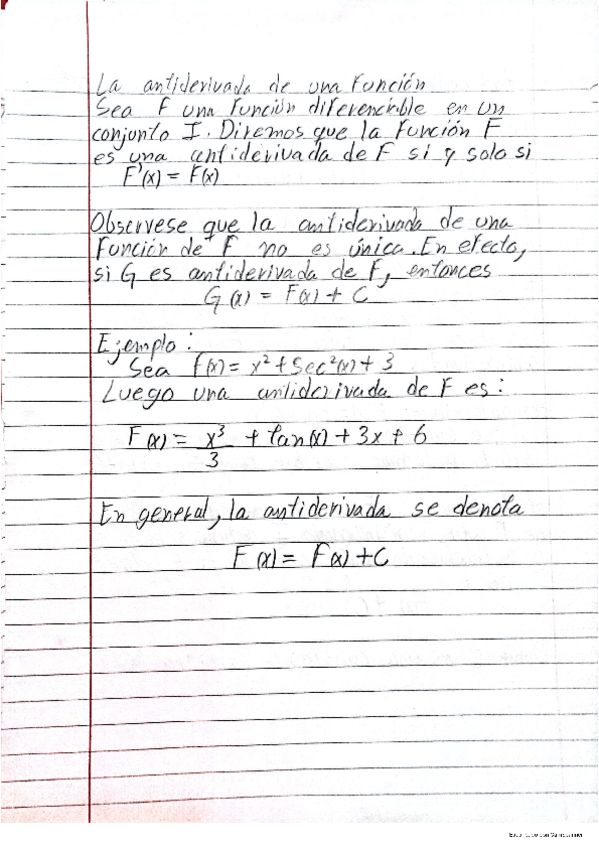 La antiderivada de una Función
Sea F una Función diferenciable en un
conjunto I. Diremos que la Función F
es una antiderivada de F si y solo si
F'(x) = F(x)
Obsérvese que la antiderivada de una
Función de F no es única. En efecto,
si G es antiderivada de F, entonces
G(x) = F(x) + C
Ejemplo:
Sea f(x) = x² + Sec²(x) + 3
Luego una antiderivada de F es:
F(x) = x³/3 + tan(x) + 3x + 6
En general, la antiderivada se denota
F(x) = F(x) + C